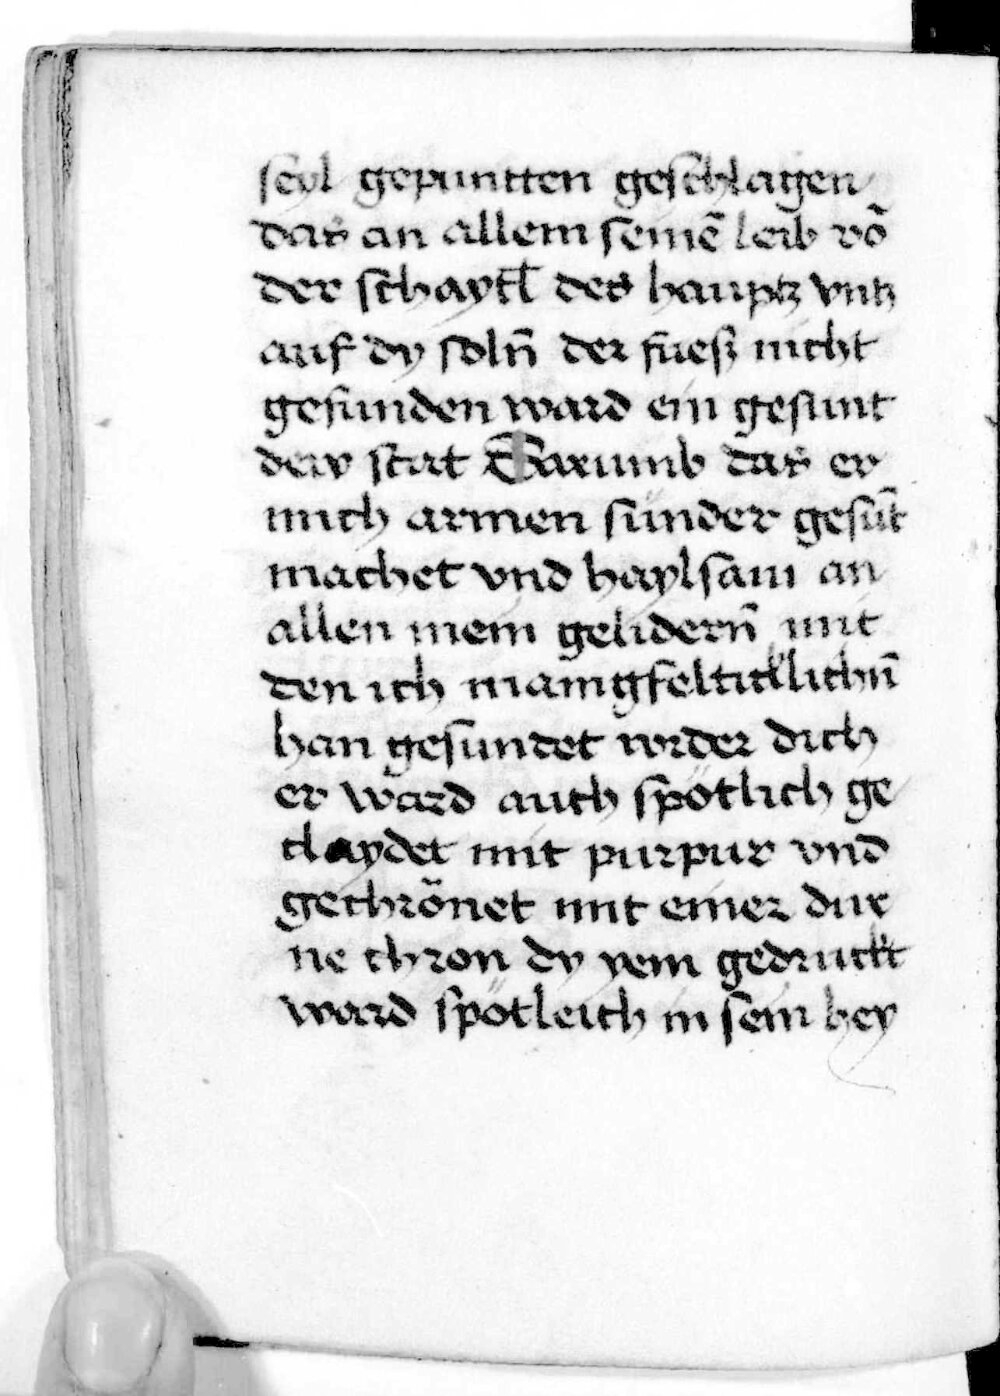 seyl gepuntten geschlagen
das an allem seinē leib vō
der schaytl des hauptz vntz
auf dy soln̄ der füesz nicht
gefunden ward ein gesunt
dew stat Darumb das er
mich armen sünder gesūt
machet vnd haylsam an
allen mein gelidern̄ mit
den ich manigfeltiklichn̄
han gesundet wider dich
er ward auch spötlich ge
claydet mit purpur vnd
gechrönet mit einer dur
ne chron dy yem gedruckt
ward spötleich in sein hey